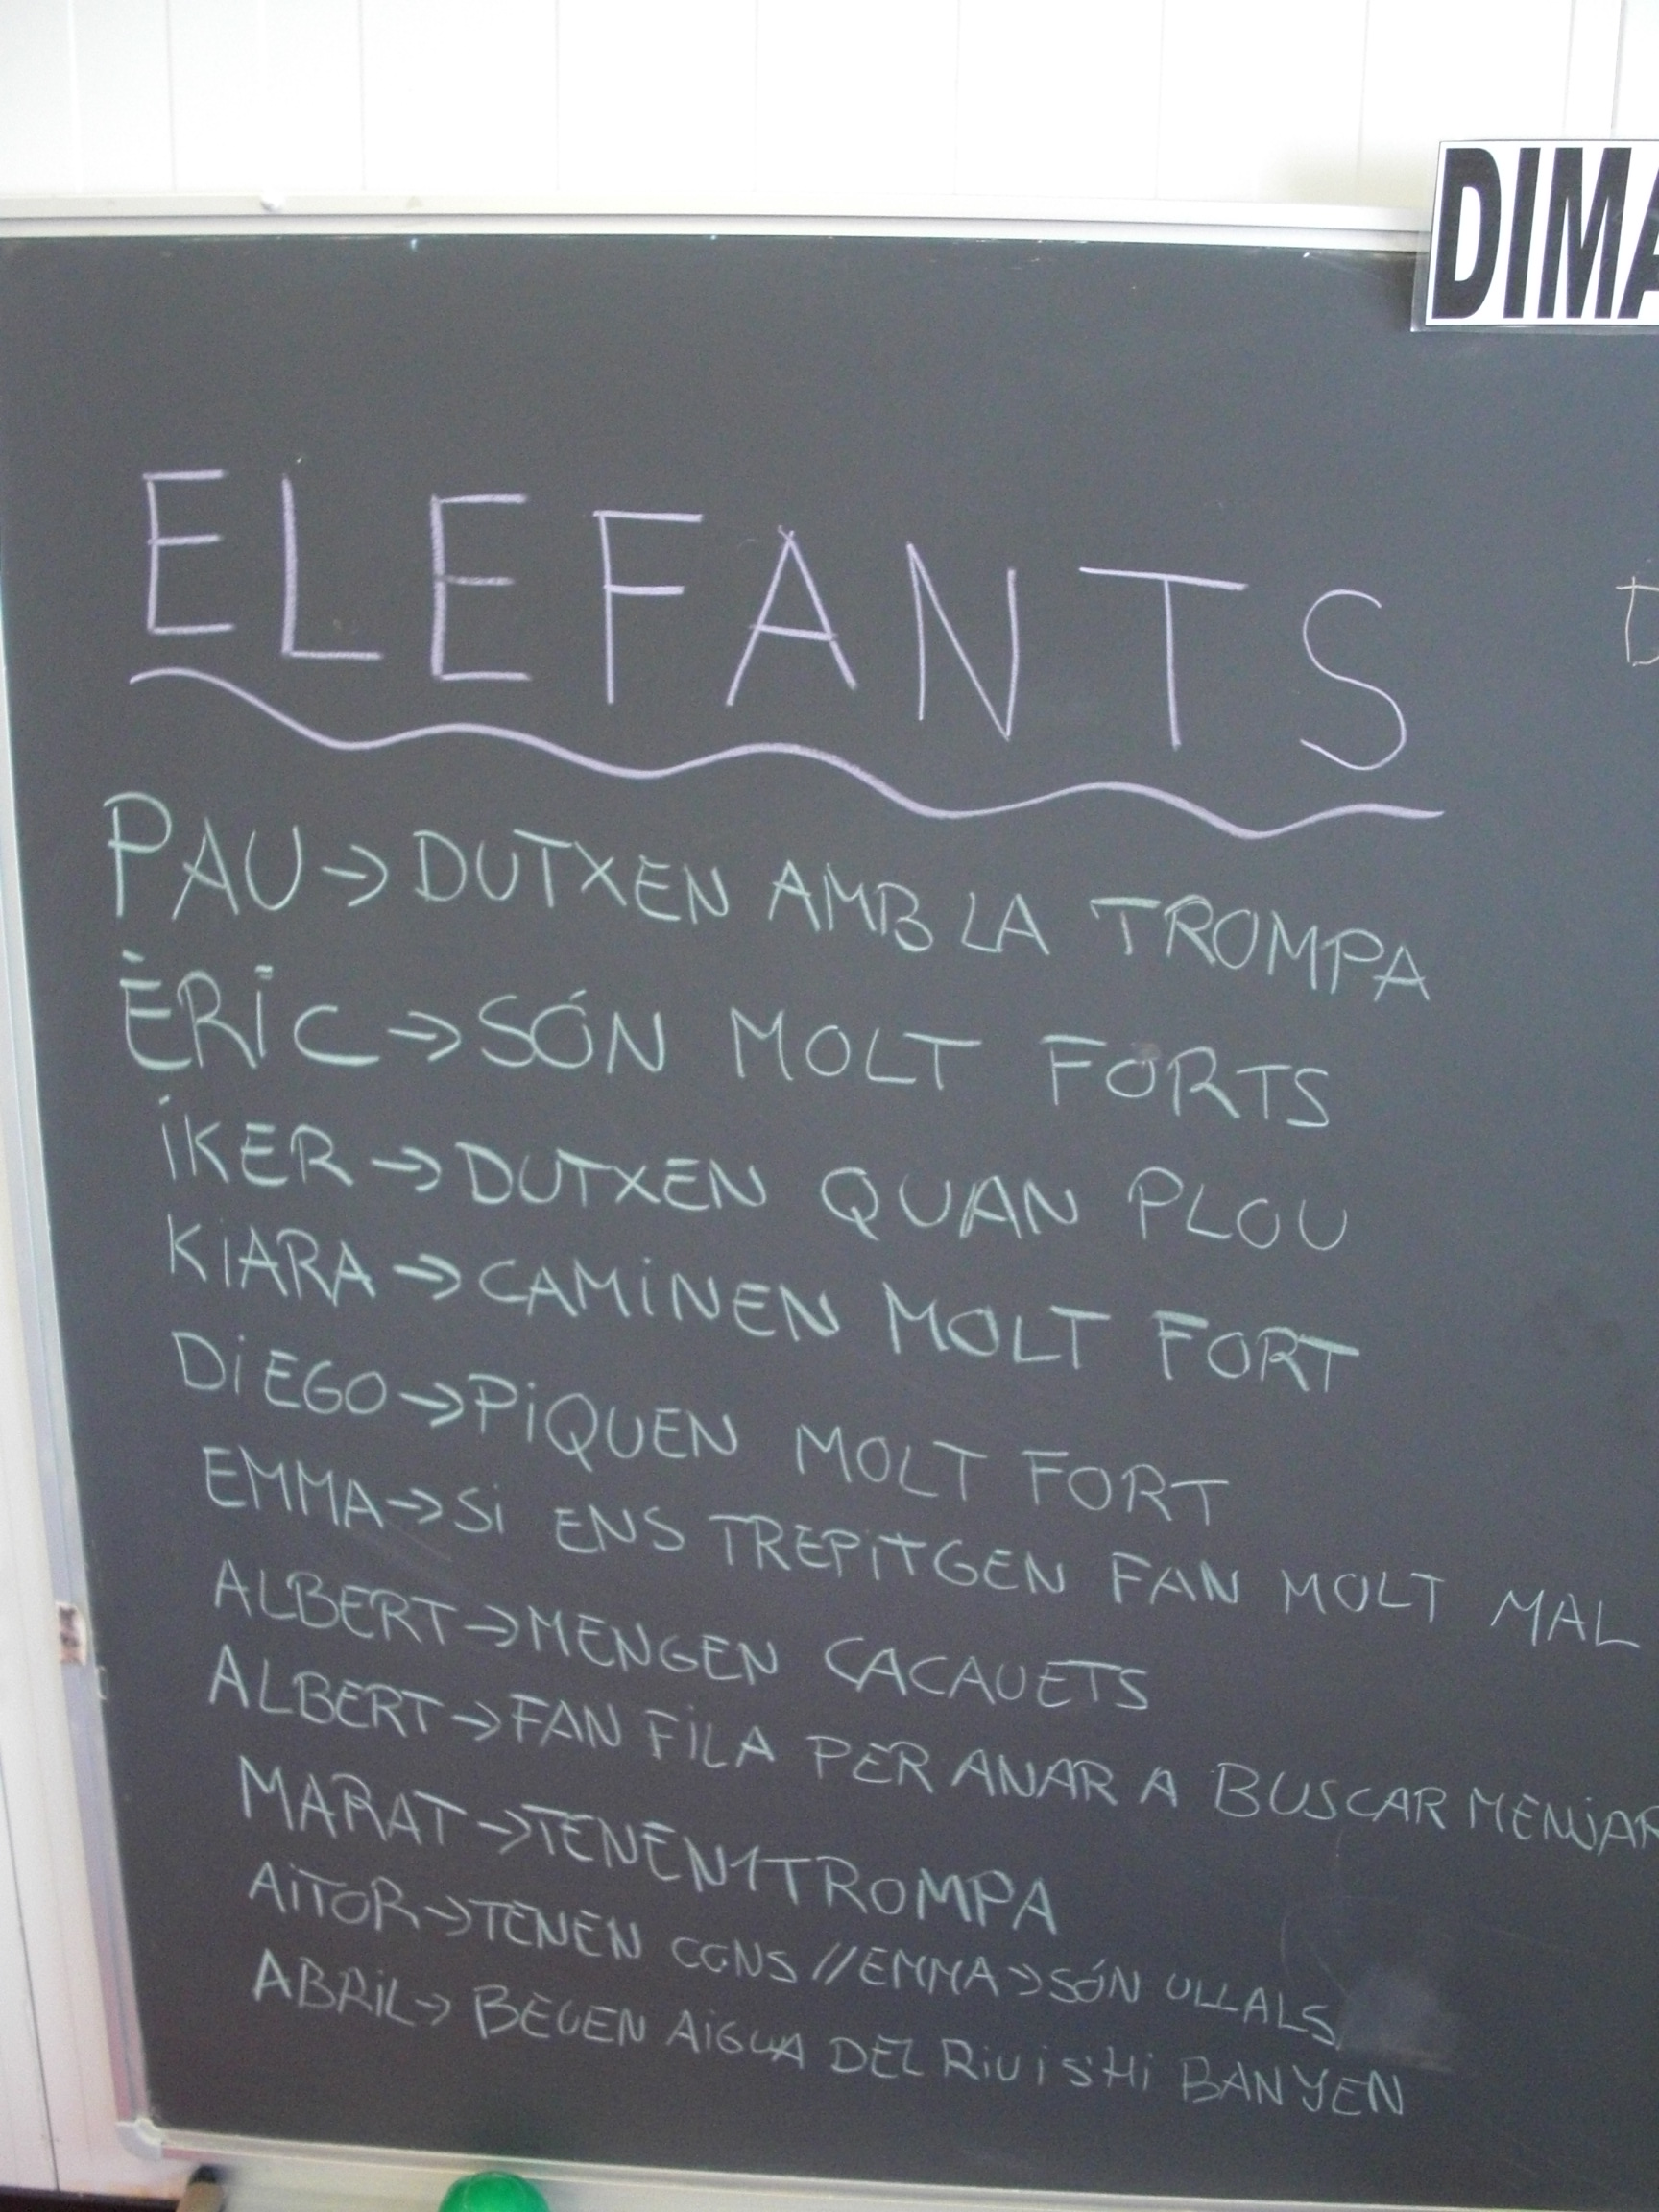 DIMA
ELEFANTS
D
PAU→DUTXEN AMB LA TROMPA
ÈRIC→SÓN MOLT FORTS
IKER→DUTXEN QUAN PLOU
KIARA→CAMINEN MOLT FORT
DIEGO→PIQUEN MOLT FORT
EMMA→SI ENS TREPITGEN FAN MOLT MAL
ALBERT→MENGEN CACAUETS
ALBERT→FAN FILA PER ANAR A BUSCAR MENJAR
MARAT→TENEN 1 TROMPA
AITOR→TENEN //EMMA→SÓN ULLALS
ABRIL→BEUEN AIGUA DEL RIU I S'HI BANYEN